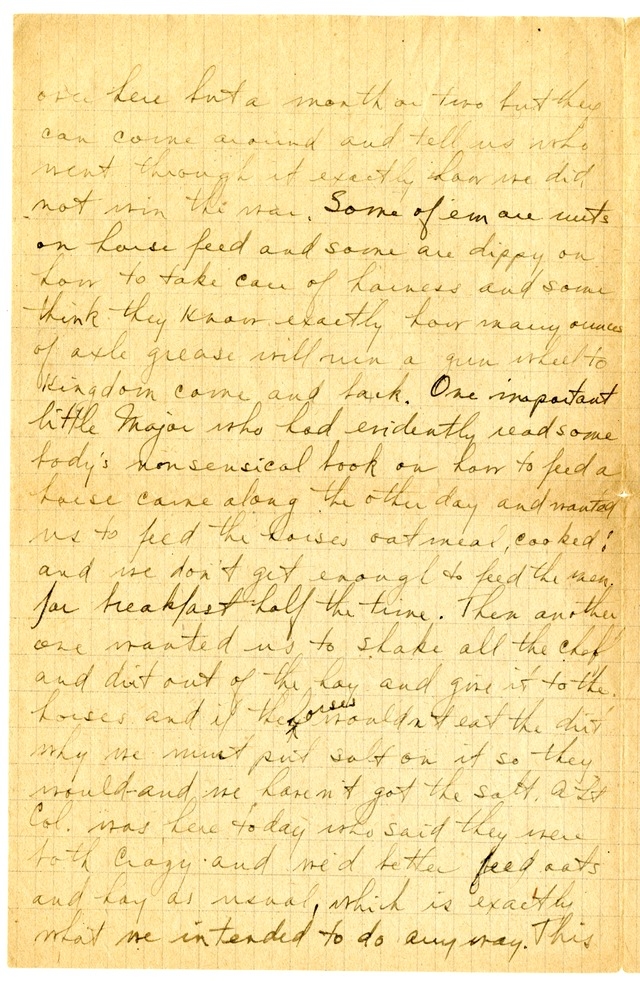 over here but a month or two but they
can come around and tell us who
went through it exactly how we did
not win the war. Some of em are nuts
on horse feed and some are dippy on
how to take care of harness and some
think they know exactly how many ounces
of axle grease will run a gun wheel to
Kingdom come and back. One important
little Major who had evidently read some
body's nonsensical book on how to feed a
horse came along the other day and wanted
us to feed the horses oatmeal, cooked!
and we don't get enough to feed the men
for breakfast half the time. Then another
one wanted us to shake all the chaf
and dirt out of the hay and give it to the
horses and if the horses wouldn't eat the dirt
why we must put salt on it so they
would-and we haven't got the salt. A Lt
Col. was here today who said they were
both crazy and we'd better feed oats
and hay as usual, which is exactly
what we intended to do anyway. This